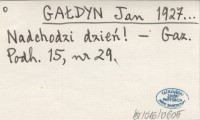 GAŁDYN Jan 1927...
Nadchodzi dzień! – Gaz.
Podh. 15, nr 29.